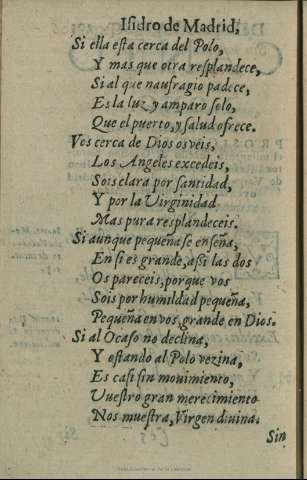 Isidro de Madrid,
Si ella eſta cerca del Polo,
Y mas que otra reſplandece,
Si al que naufragio padece,
Es la luz y amparo ſolo,
Que el puerto, y ſalud ofrece.
Vos cerca de Dios os veis,
Los Angeles excedeis,
Sois clara por ſantidad,
Y por la Uirginidad
Mas pura reſplandeceis.
Si aunque pequeña ſe enſeña,
En ſi es grande, aſsi las dos
Os pareceis, porque vos
Sois por humildad pequeña,
Pequeña en vos, grande en Dios.
Si al Ocaſo no declina,
Y eſtando al Polo vezina,
Es caſi ſin mouimiento,
Uueſtro gran merecimiento
Nos mueſtra, Virgen diuina.
Sin